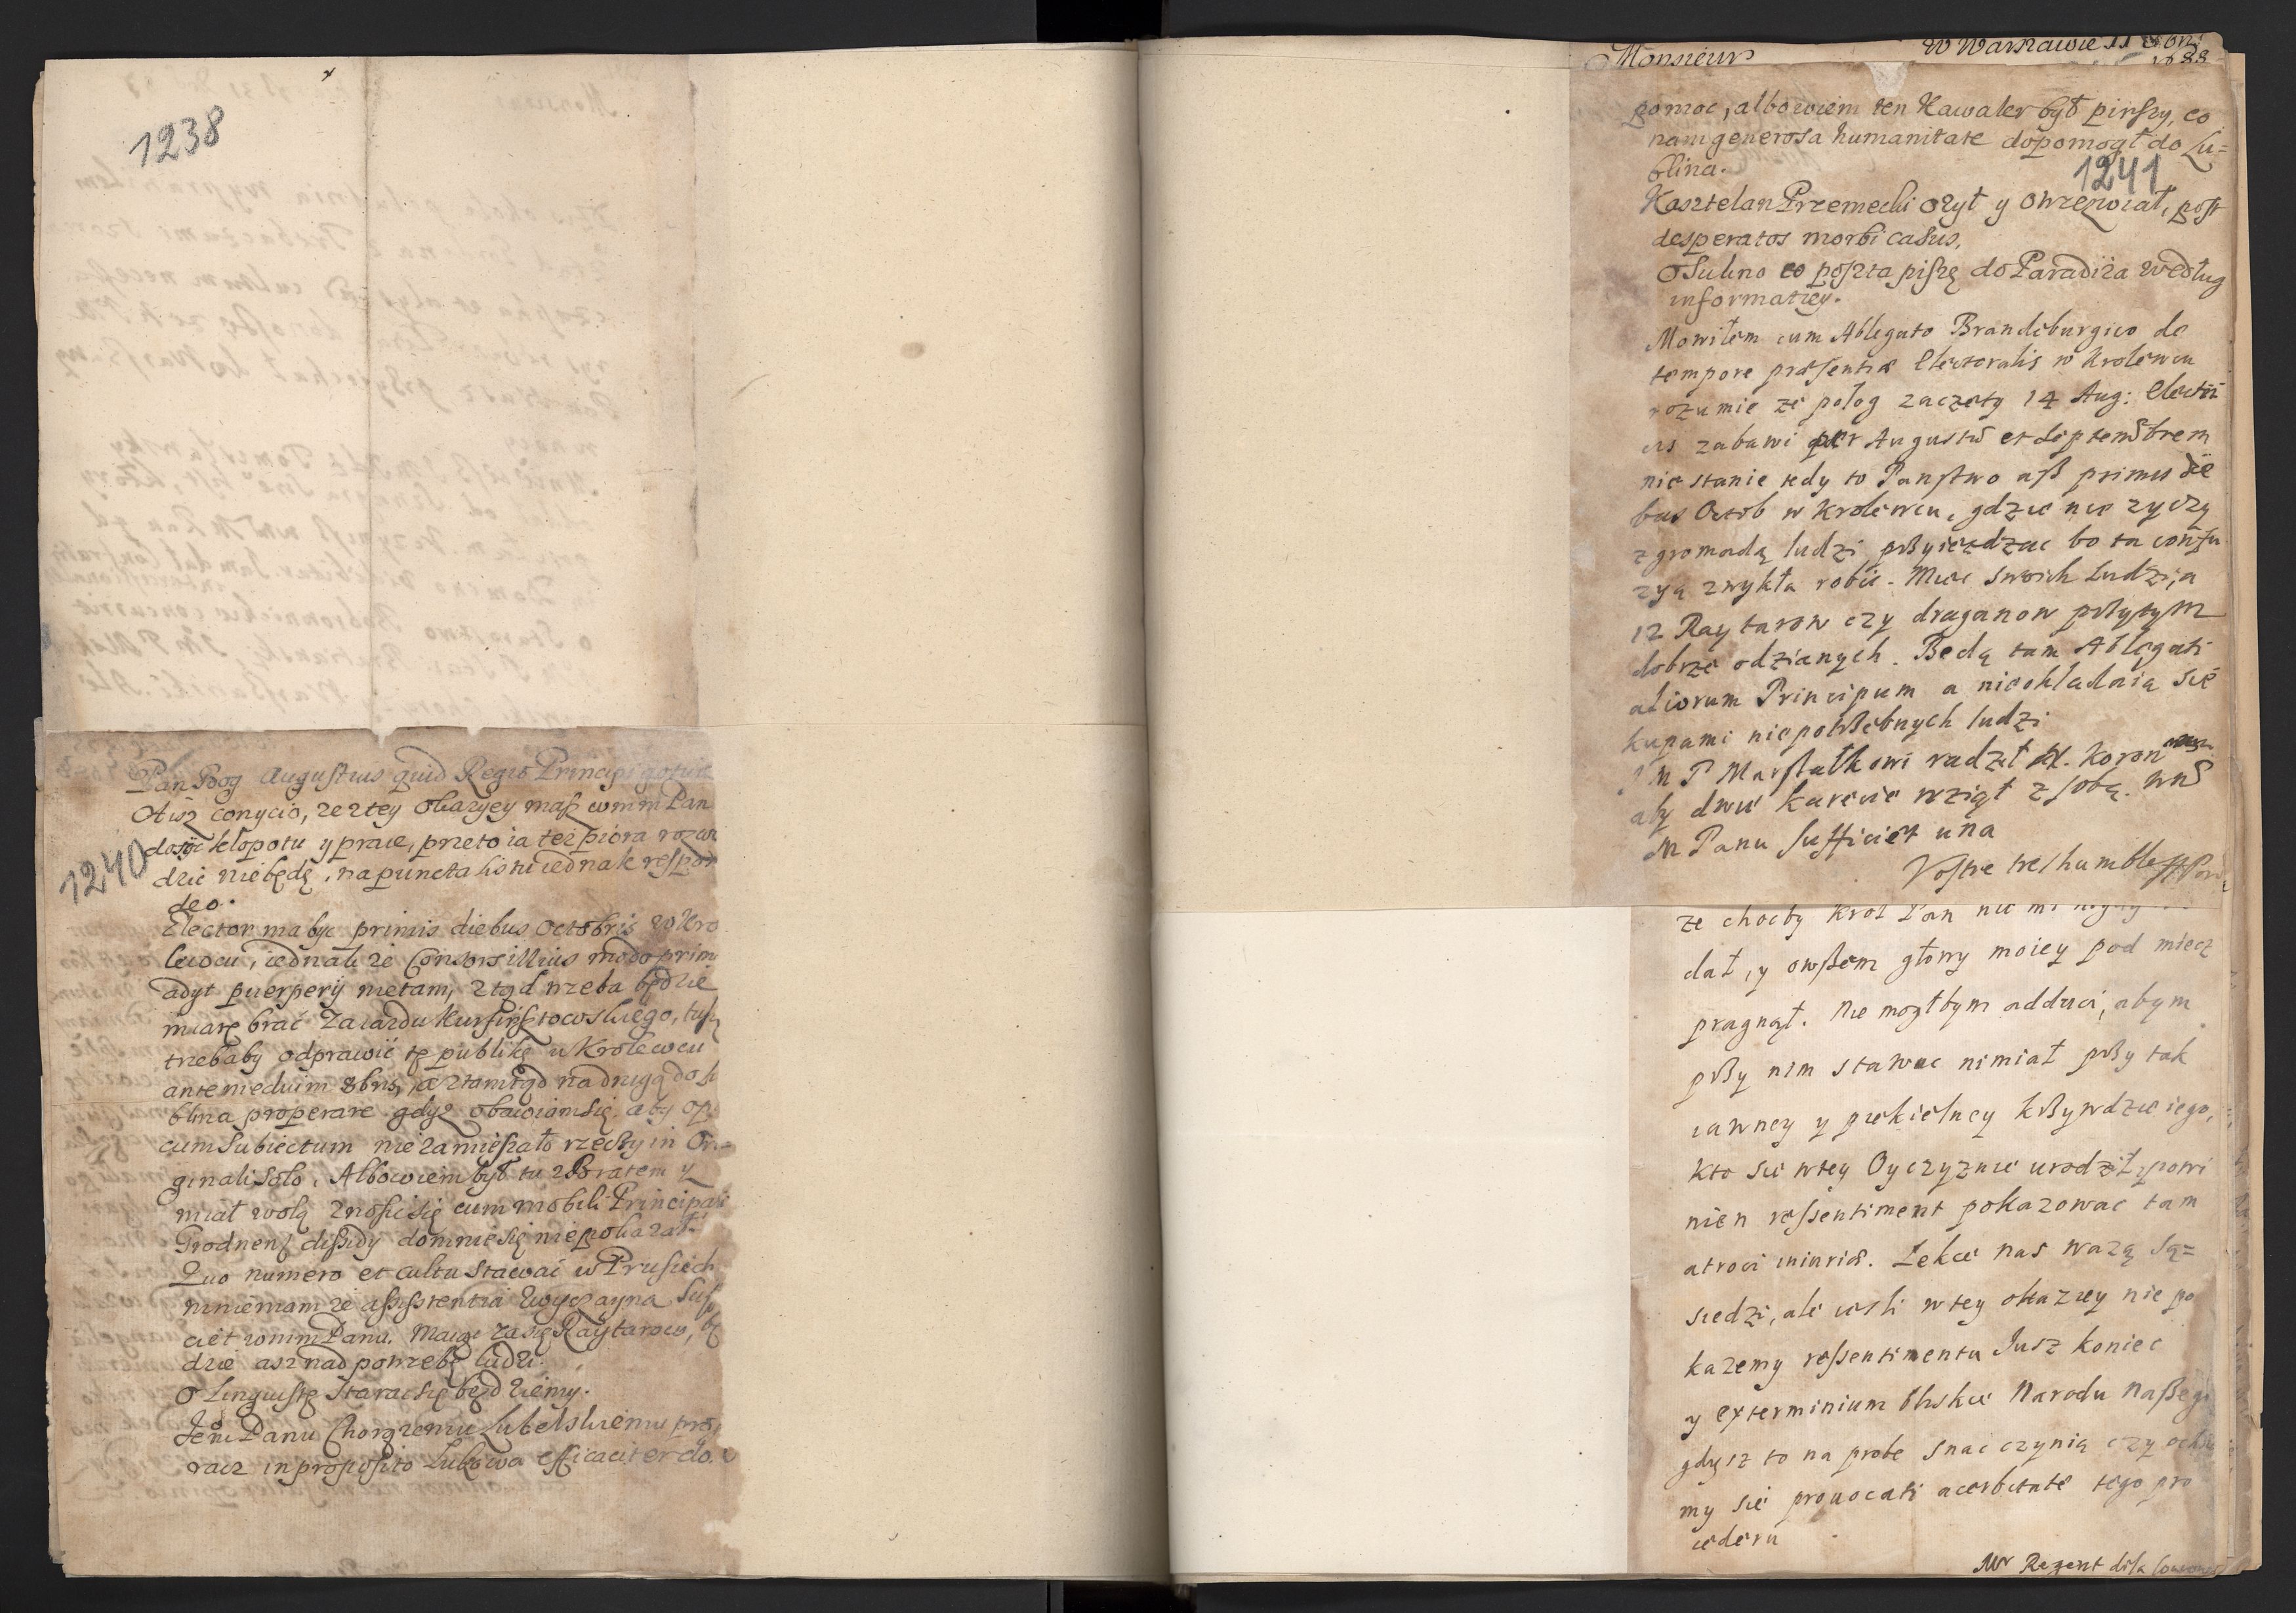 1238
Pan Boog Augustius quid Regio Principi gotuie
Atisz conycio, ze z tey okazyey masz wmm Pan
dosyc klopotu y prace, przeto ia tez piora rozwo
1240
dzic niebędę, na puncta listu iednak respon
deo.
Elector ma byc primis diebus Octobris w Kro
lewcu, iednak ze Consors illius modo prima
adyt puerperij metam, ztąd trzeba będzie
miarę brać Zaiazdu Kurfirsztowskiego,
trzebaby odprawić tę publikę u Krolewcu
ante medium 8bris, a ztamtąd na drugą do Lu
blina properare gdyz obawiam się, aby opi
cum Subiectum nie zamieszało rzeczy in Ori=
ginali Solo, Albowiem był tu z Bratem y
miał wolą znosic się cum mobili Principali
Grodnens dissidy do mnie się nie pokazał.
Quo numero et cultu stawac w Prusiech
mniemam ze assistentia zwyczayna Suffi
ciet wmm Panu. Maiąc zasię Raytarow, bę
dzie asz nad potrzebę ludzi.
O Linguistę starac się będziemy.
Jem Panu Chorązemu Lubelskiemu pro
racz in proposito Lukowa efficaciter do.
Monsieur
W Warszawie 11
1688
pomoc, albowiem ten Kawaler był pirszy, co
nam generosa humanitate dopomogł do Lu=
blina.
1241
Kasztelan Przemecki ozył y otrzezwiał, post
desperatos morbi casus,
O Sulino co poszta piszę do Paradiza według
informatiey.
Mowiłem cum Ablegato Brandeburgico de
tempore præsentiæ Electoralis w Krolewcu
rozumie ze połog zaczęty 14 Aug: Electri
cis zabawi per Augustu et Septembrem
nie stanie tedy to Panstwo asz primis die
bus Octob w Krolewcu, gdzie nie zyczy
z gromadą ludzi przyiezdzac bo ta confu
zyą zwykła robic. Miec swoich ludzi, a
12 Raytarow czy draganow przytym
dobrze odzianych. Będą tam Ablegati
aliorum Principum a nieokładaią się
kupami niepotrzebnych ludzi
J M P Marszałkowi radził X. Koron
aby dwie karecie wziął z sobą. Wm
M Panu Sufficiet una
Vostre tres humble
ze chocby Krol Pan nic mi nigdy
dał, y owszem głowy moiey pod miecz
pragnął. Nie mogłbym adduci, abym
przy nim stawac nimiał przy tak
iawney y piekielney krzywdzie iego,
kto sie wtey Oyczyznie urodził, powi
nien ressentiment pokazowac tam
atroci iniuriæ. Lekce nas wazą są=
siedzi, ale iesli wtey okaziey nie po
kazemy ressentimentu Jusz koniec
y exterminium bliskie Narodu Naszego
gdysz to na probe snac czynią czy
my sie prouocati acerbitate tego pro
cederu
Mr Regent dela